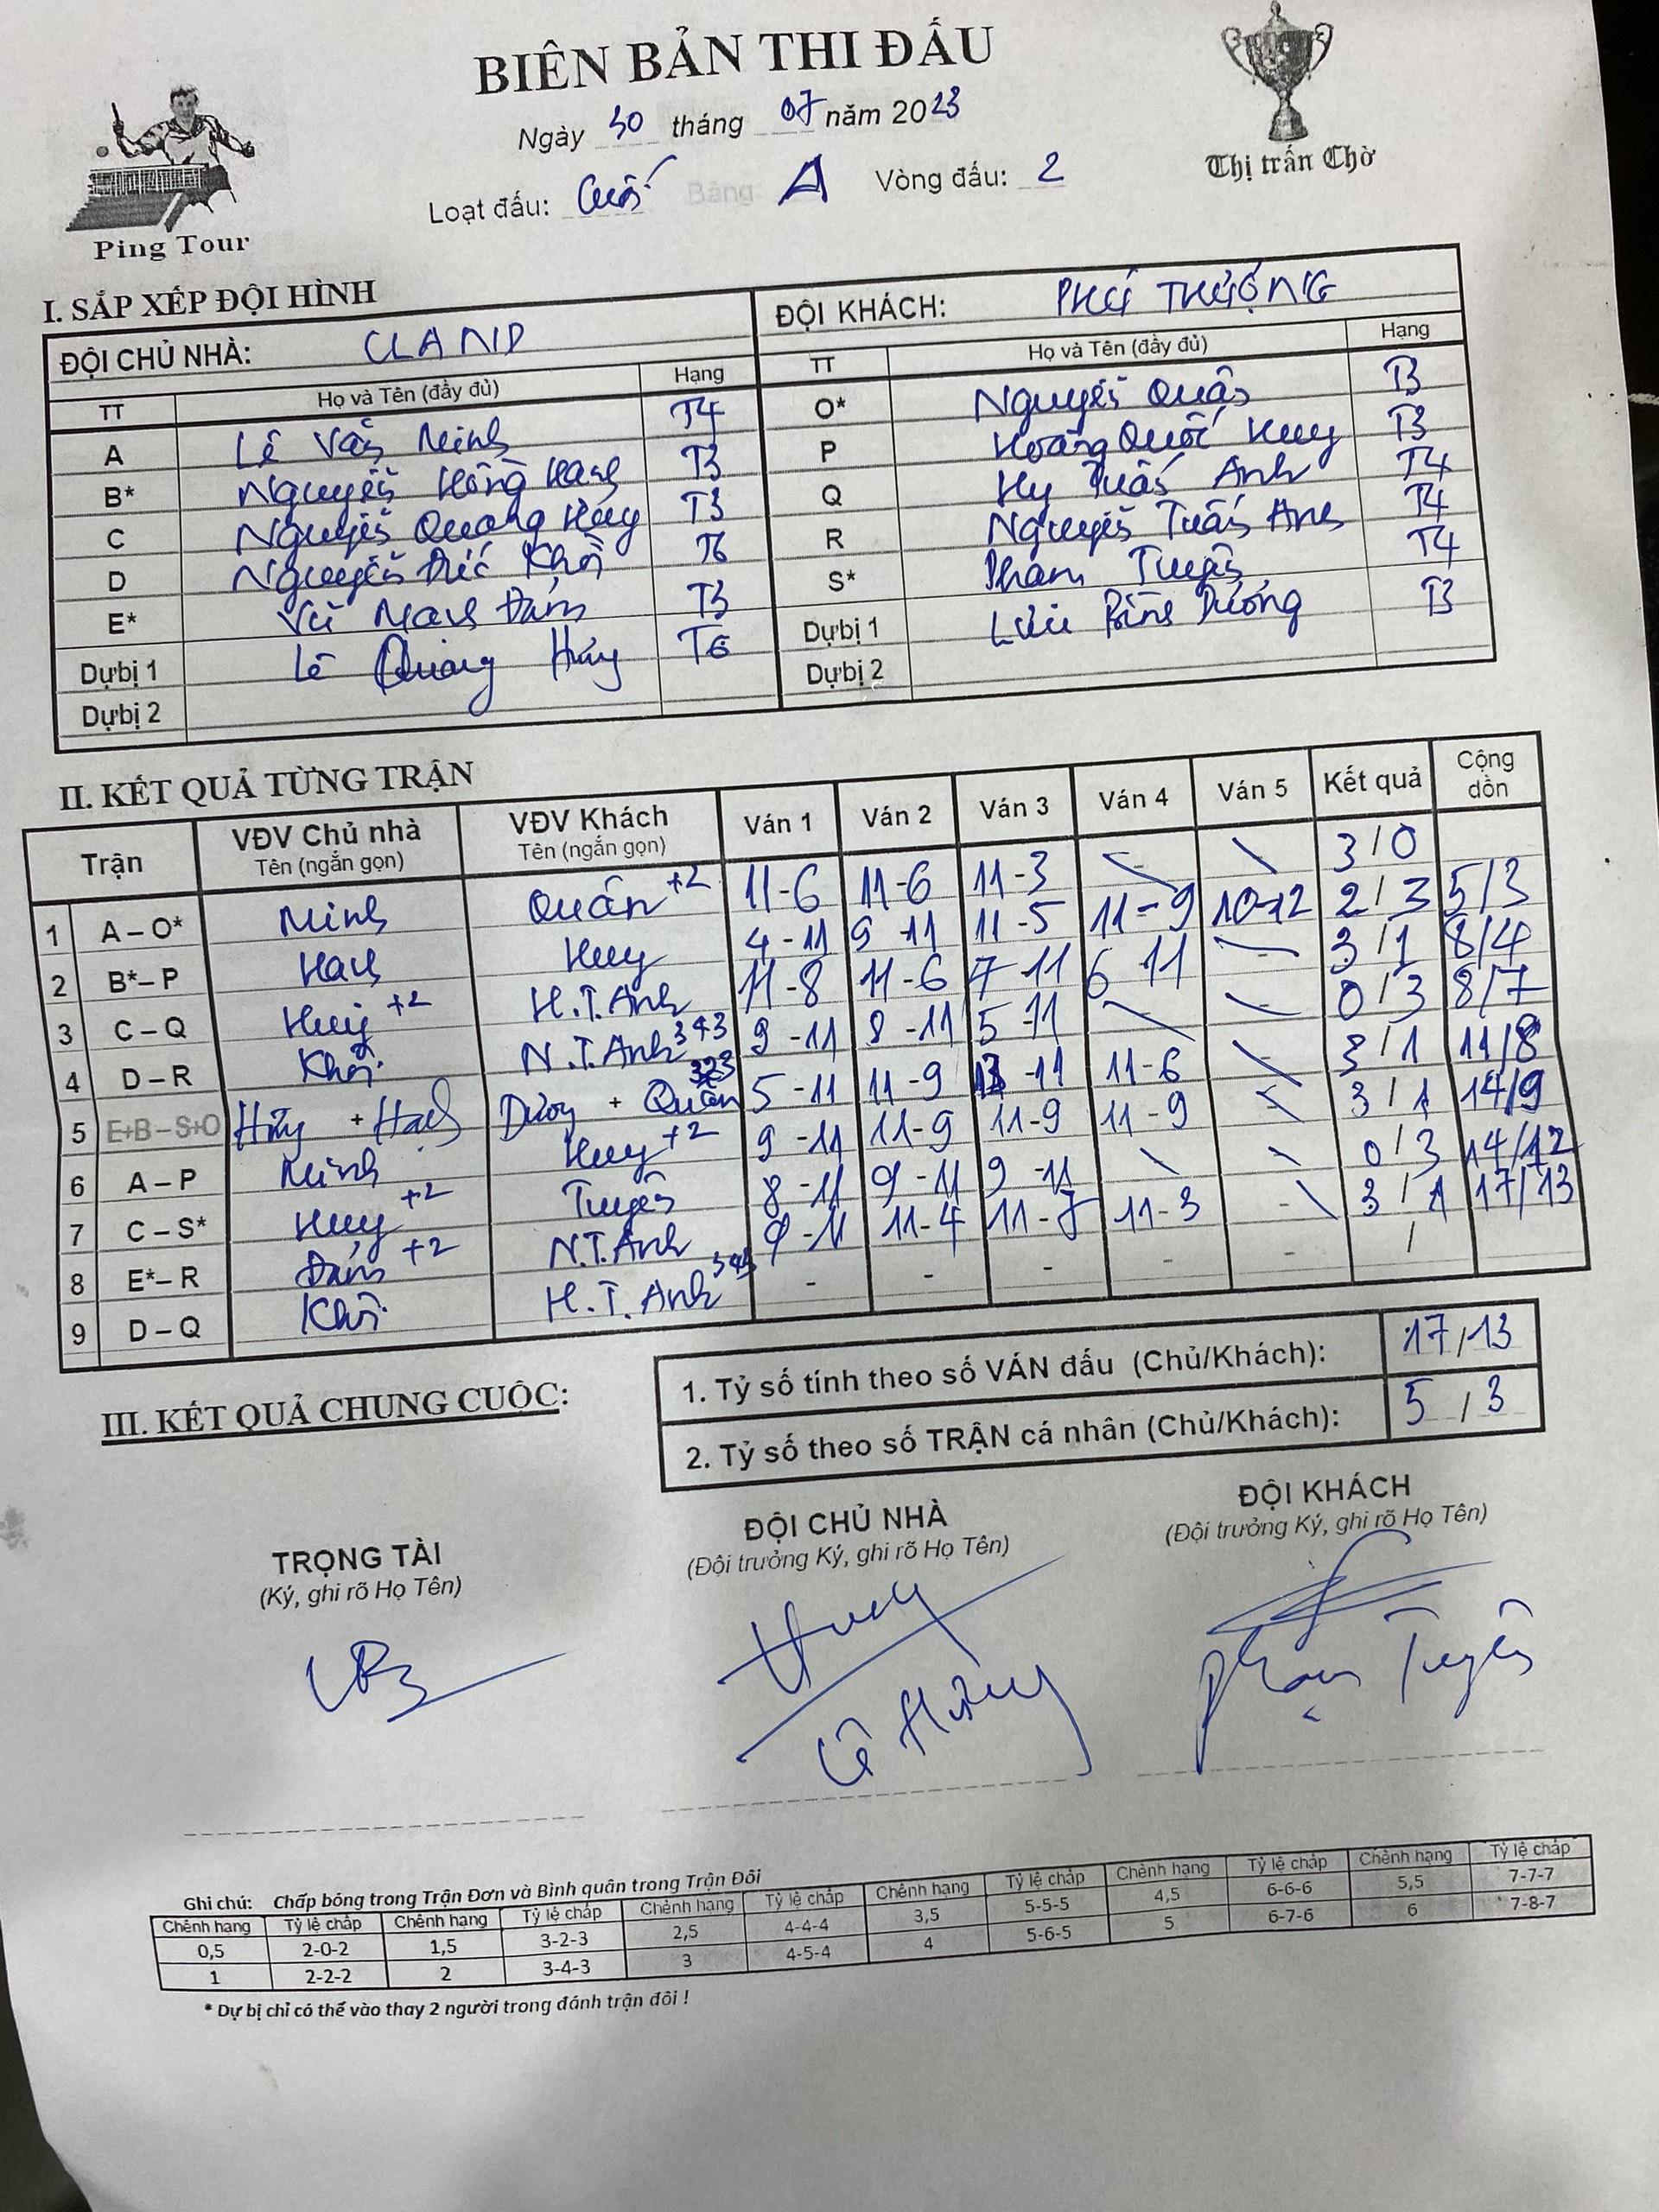 BIÊN BẢN THI ĐẤU
Ngày 30 tháng 07 năm 2023
Loạt đấu: Cuối Bảng A Vòng đấu: 2
Ping Tour
Thị trấn Chờ
I. SẮP XẾP ĐỘI HÌNH
ĐỘI CHỦ NHÀ: CLAND ĐỘI KHÁCH: PHÚ THƯỢNG
TT Họ và Tên (đầy đủ) Hạng TT Họ và Tên (đầy đủ) Hạng
A Lê Văn Minh T4 O* Nguyễn Quân T3
B* Nguyễn Hồng Hạnh T3 P Hoàng Quốc Huy T3
C Nguyễn Quang Huy T3 Q Hy Tuấn Anh T4
D Nguyễn Đức Khôi T6 R Nguyễn Tuấn Anh T4
E* Vũ Mạnh Đán T3 S* Phạm Tuyên T4
Dự bị 1 Lê Quang Hưng T6 Dự bị 1 Lưu Bình Dương T3
Dự bị 2 Dự bị 2
II. KẾT QUẢ TỪNG TRẬN
Trận VĐV Chủ nhà Tên (ngắn gọn) VĐV Khách Tên (ngắn gọn) Ván 1 Ván 2 Ván 3 Ván 4 Ván 5 Kết quả Cộng dồn
1 A – O* Minh Quân +2 11-6 11-6 11-3 3/0
2 B* – P Hạnh Huy 4-11 9-11 11-5 11-9 10-12 2/3 5/3
3 C – Q Huy +2 H.T.Anh 11-8 11-6 7-11 6 11 3/1 8/4
4 D – R Khôi N.T.Anh 343 9-11 8-11 5-11 0/3 8/7
5 E+B – S+O Hưng + Hạnh Dương + Quân 323 5-11 11-9 13-11 11-6 3/1 11/8
6 A – P Minh Huy +2 9-11 11-9 11-9 11-9 3/1 14/9
7 C – S* Huy +2 Tuyên 8-11 9-11 9-11 0/3 14/12
8 E* – R Đán +2 N.T.Anh 9-11 11-4 11-8 11-3 3/1 17/13
9 D – Q Khôi H.T.Anh 343 - - - - - /
III. KẾT QUẢ CHUNG CUỘC:
1. Tỷ số tính theo số VÁN đấu (Chủ/Khách): 17/13
2. Tỷ số theo số TRẬN cá nhân (Chủ/Khách): 5/3
TRỌNG TÀI ĐỘI CHỦ NHÀ ĐỘI KHÁCH
(Ký, ghi rõ Họ Tên) (Đội trưởng Ký, ghi rõ Họ Tên) (Đội trưởng Ký, ghi rõ Họ Tên)
Huy
Lê Hưng Phạm Tuyên
Ghi chú: Chấp bóng trong Trận Đơn và Bình quân trong Trận Đôi
Chênh hạng Tỷ lệ chấp Chênh hạng Tỷ lệ chấp Chênh hạng Tỷ lệ chấp Chênh hạng Tỷ lệ chấp Chênh hạng Tỷ lệ chấp Chênh hạng Tỷ lệ chấp
0,5 2-0-2 1,5 3-2-3 2,5 4-4-4 3,5 5-5-5 4,5 6-6-6 5,5 7-7-7
1 2-2-2 2 3-4-3 3 4-5-4 4 5-6-5 5 6-7-6 6 7-8-7
* Dự bị chỉ có thể vào thay 2 người trong đánh trận đôi !